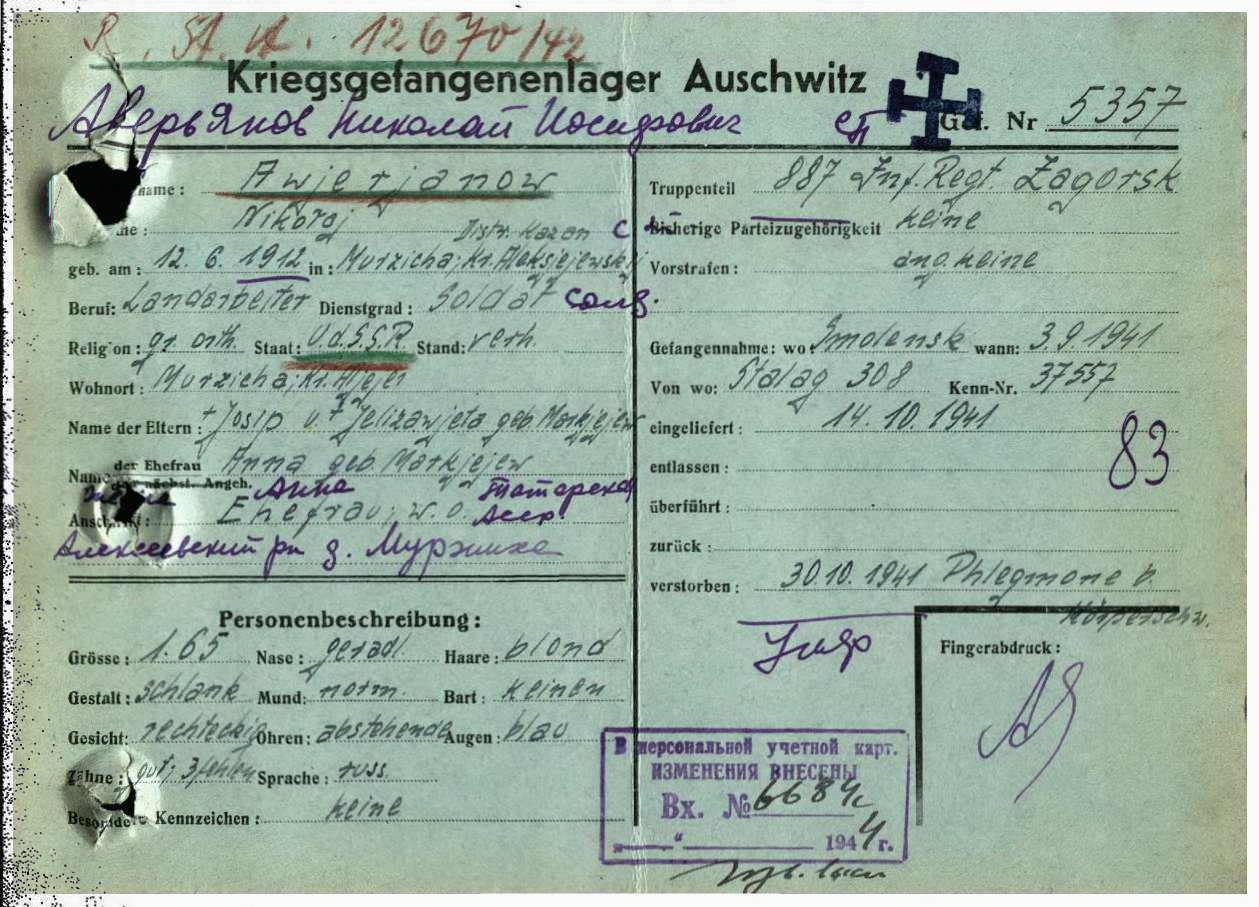 R. St. A. 12670/42
Kriegsgefangenenlager Auschwitz
Аверьянов Николай Иосифович СП Gef. Nr 5357
name: Awjerjanow
Nikoraj
Distr. Kazan
geb. am: 12. 6. 1912 in: Murzicha, Kr. Aleksjejewskij
Beruf: Landarbeiter Dienstgrad: Soldat солд.
Religion: gr. orth. Staat: U.d.S.S.R Stand: verh.
Wohnort: Murzicha, Kr. Alejej
Name der Eltern: + Josip u. + Jelizawjeta geb. Markjejew
Name der Ehefrau Anna geb. Markjejew
der nächst. Angeh.
жена Анна Татарская
Anschrift: Ehefrau, w. o. Асср.
Алексеевский рн д. Мурзиха
Personenbeschreibung:
Grösse: 1.65 Nase: geradl. Haare: blond
Gestalt: schlank Mund: norm. Bart: keinen
Gesicht: rechteckig Ohren: abstehende Augen: blau
Zähne: gut; 3 fehlen Sprache: russ.
Besondere Kennzeichen: keine
Truppenteil 887 Inf. Regt. Zagorsk
Bisherige Parteizugehörigkeit keine
Vorstrafen: ang. keine
Gefangennahme: wo: Smolensk wann: 3.9.1941
Von wo: Stalag 308 Kenn-Nr. 37557
eingeliefert: 14.10.1941
83
entlassen:
überführt:
zurück:
verstorben: 30.10.1941 Phlegmone b.
Körperschw.
Fingerabdruck:
В персональной учетной карт.
ИЗМЕНЕНИЯ ВНЕСЕНЫ
Вх. № 6684с
„ “ 1944 г.